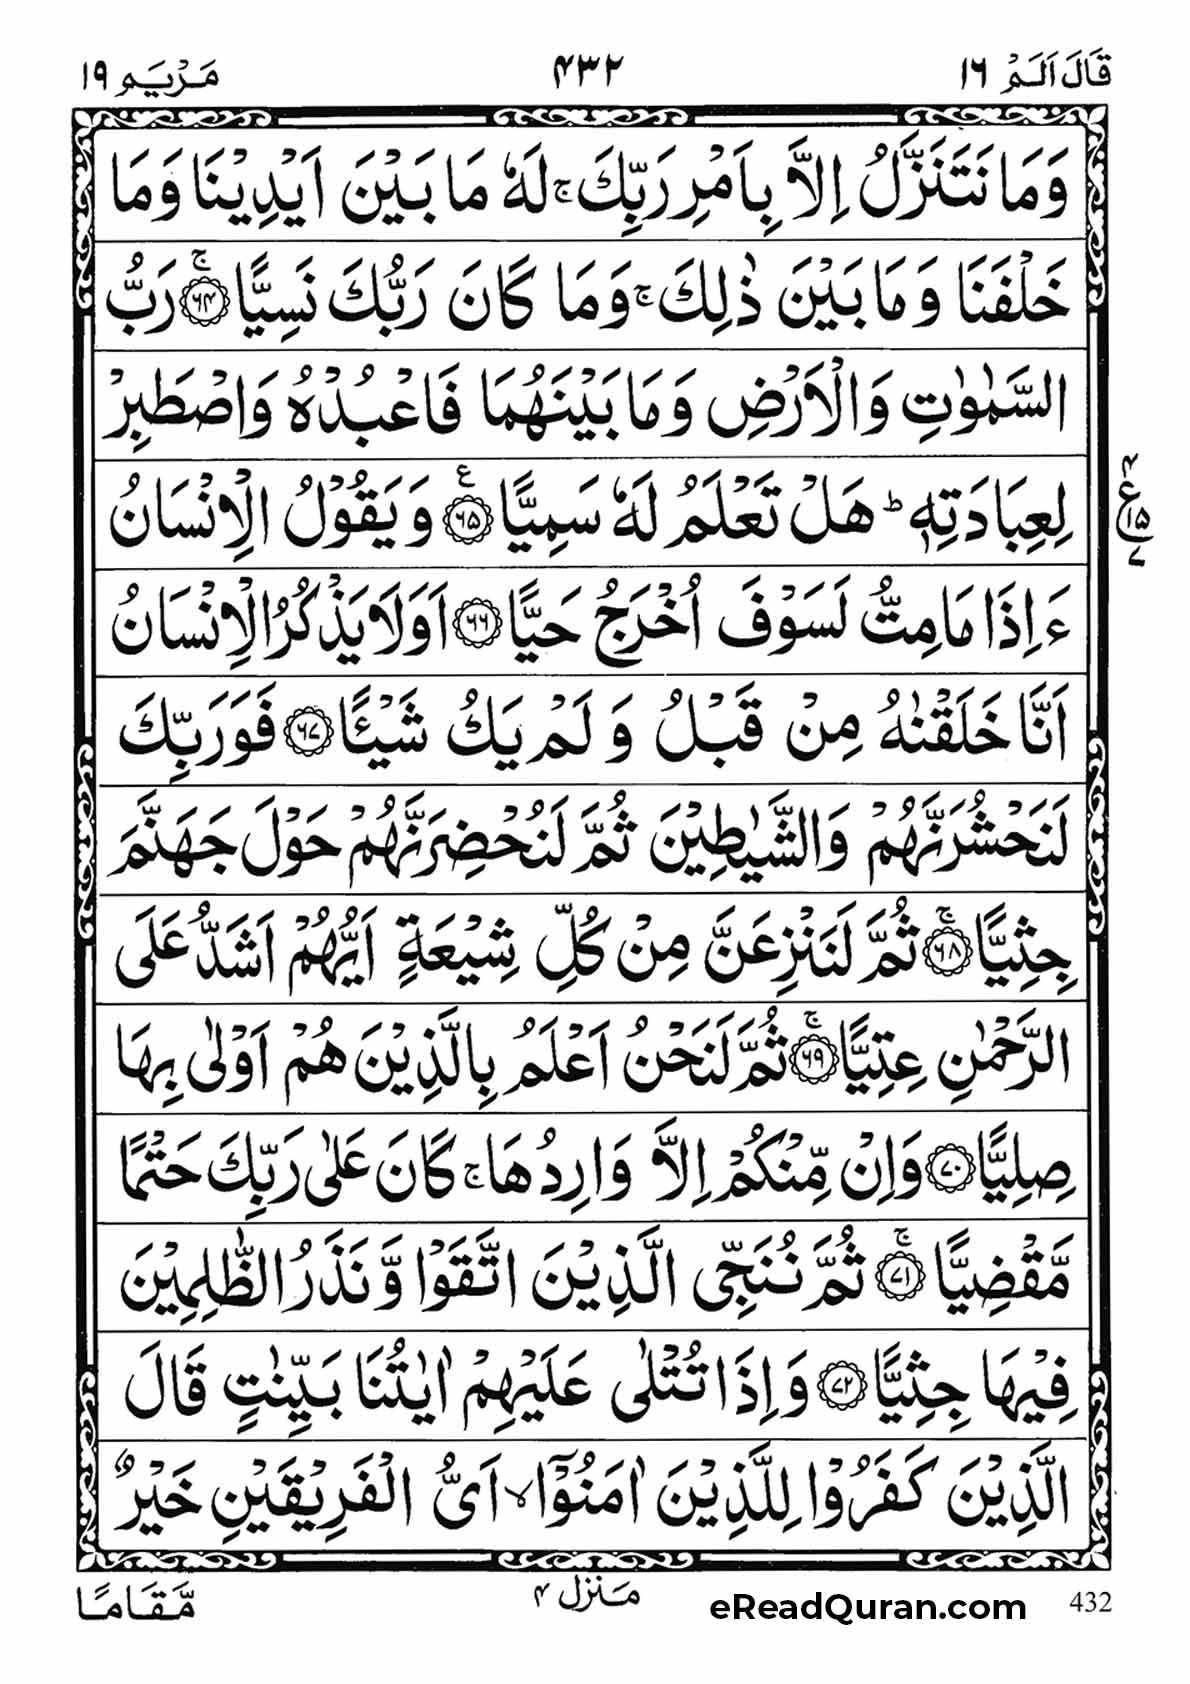 قَالَ اَلَمْ ١٦ ٤٣٢ مَرْيَم ١٩
وَمَا نَتَنَزَّلُ اِلَّا بِاَمْرِ رَبِّكَ ۚ لَهٗ مَا بَيْنَ اَيْدِيْنَا وَمَا
خَلْفَنَا وَمَا بَيْنَ ذٰلِكَ ۚ وَمَا كَانَ رَبُّكَ نَسِيًّا ۚ ﴿٦٤﴾ رَبُّ
السَّمٰوٰتِ وَالْاَرْضِ وَمَا بَيْنَهُمَا فَاعْبُدْهُ وَاصْطَبِرْ
لِعِبَادَتِهٖ ؕ هَلْ تَعْلَمُ لَهٗ سَمِيًّا ﴿٦٥﴾ ع وَيَقُوْلُ الْاِنْسَانُ
ع ١٥ ٧
ءَاِذَا مَا مِتُّ لَسَوْفَ اُخْرَجُ حَيًّا ﴿٦٦﴾ اَوَلَا يَذْكُرُ الْاِنْسَانُ
اَنَّا خَلَقْنٰهُ مِنْ قَبْلُ وَلَمْ يَكُ شَيْـًٔا ﴿٦٧﴾ فَوَرَبِّكَ
لَنَحْشُرَنَّهُمْ وَالشَّيٰطِيْنَ ثُمَّ لَنُحْضِرَنَّهُمْ حَوْلَ جَهَنَّمَ
جِثِيًّا ۚ ﴿٦٨﴾ ثُمَّ لَنَنْزِعَنَّ مِنْ كُلِّ شِيْعَةٍ اَيُّهُمْ اَشَدُّ عَلَى
الرَّحْمٰنِ عِتِيًّا ۚ ﴿٦٩﴾ ثُمَّ لَنَحْنُ اَعْلَمُ بِالَّذِيْنَ هُمْ اَوْلٰى بِهَا
صِلِيًّا ﴿٧٠﴾ وَاِنْ مِّنْكُمْ اِلَّا وَارِدُهَا ۚ كَانَ عَلٰى رَبِّكَ حَتْمًا
مَّقْضِيًّا ۚ ﴿٧١﴾ ثُمَّ نُنَجِّى الَّذِيْنَ اتَّقَوْا وَّنَذَرُ الظّٰلِمِيْنَ
فِيْهَا جِثِيًّا ﴿٧٢﴾ وَاِذَا تُتْلٰى عَلَيْهِمْ اٰيٰتُنَا بَيِّنٰتٍ قَالَ
الَّذِيْنَ كَفَرُوْا لِلَّذِيْنَ اٰمَنُوْۤا ۙ اَىُّ الْفَرِيْقَيْنِ خَيْرٌ
432 eReadQuran.com مَنزل ٤ مَّقَامًا